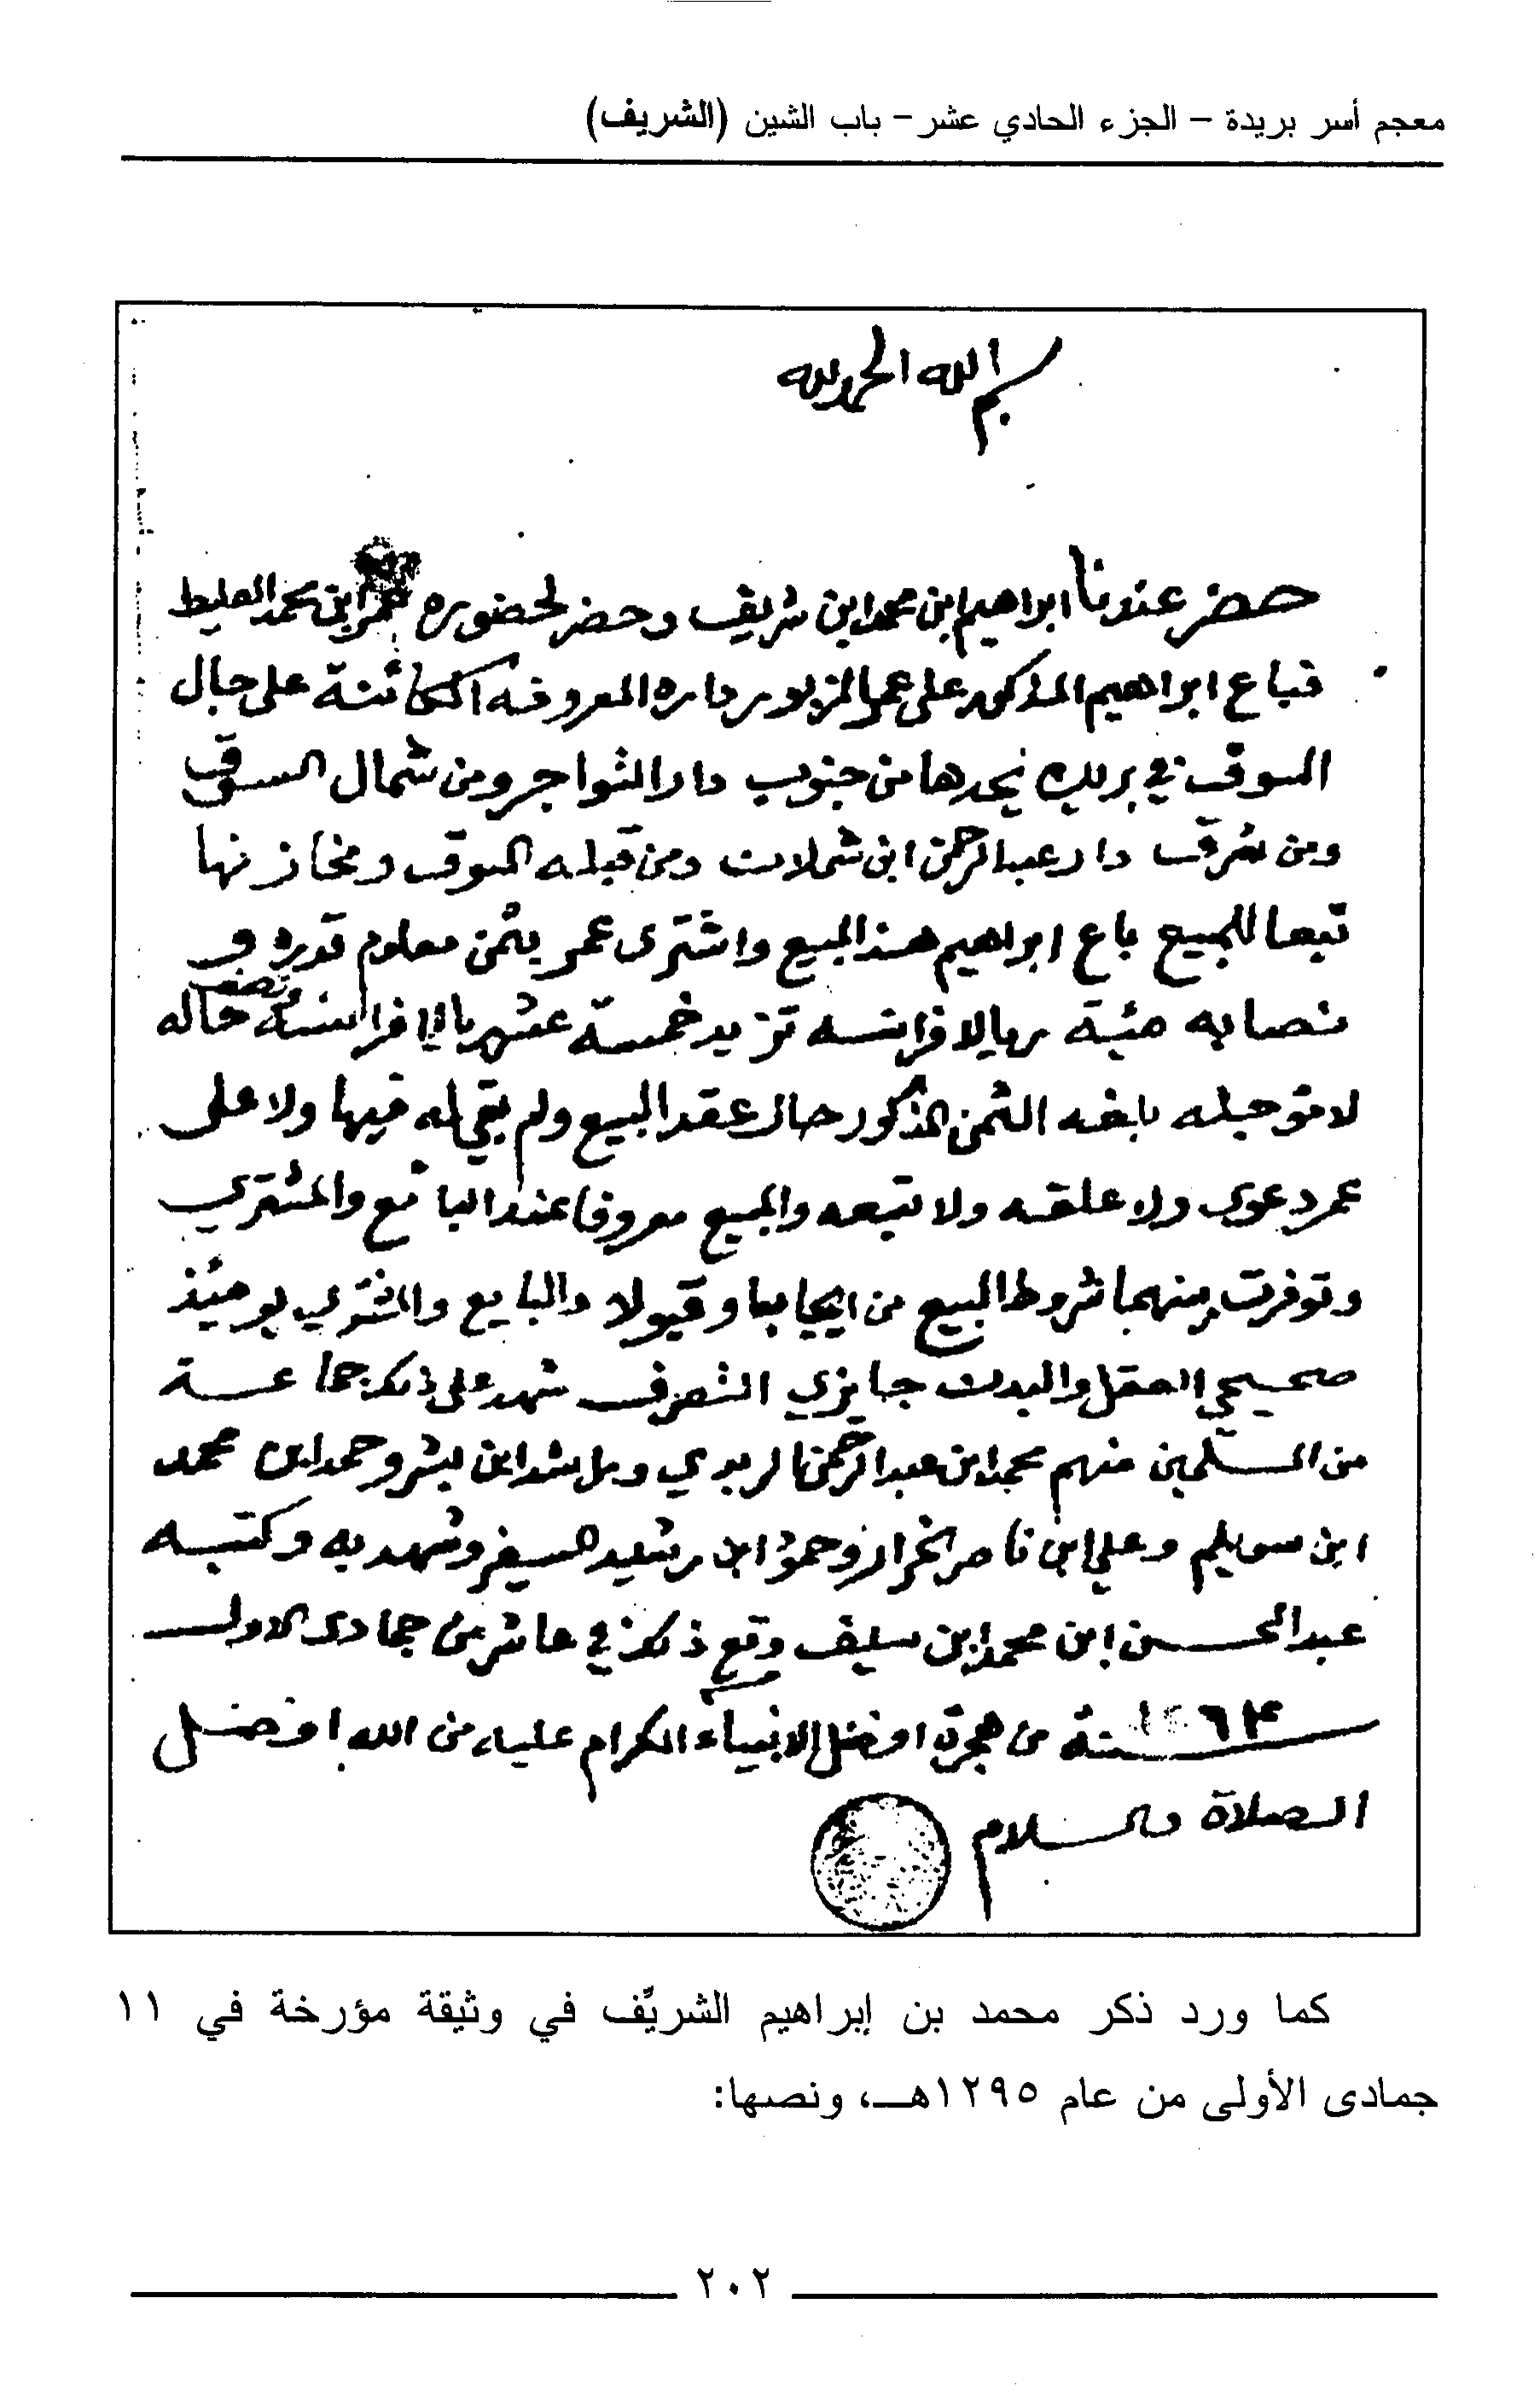 معجم أسر بريدة – الجزء الحادي عشر – باب الشين (الشريف)
بسم الله الحمد لله
حضر عندنا ابراهيم ابن محمد ابن شريف وحضر لحضوره عمر ابن محمد العليط
فباع ابراهيم المذكور على عمر المزبور داره المعروفه الكائنة على جال
السوق في بريده يحدها من جنوب دار الثواجر ومن شمال السوق
ومن شرق دار عبدالرحمن ابن شملان ومن قبله السوق ومخازنها
تبعا للمبيع باع ابراهيم هذا المبيع واشترى عمر بثمن معلوم قدره و
نصابه مئية ريالا فرانسه تزيد خمسة عشر ريالا فرانسه حاله
لا مؤجله بلغه الثمن المذكور حال عقد البيع ولم يبق له فيها ولا على
عمر دعوى ولا علقه ولا تبعه والمبيع معروفا عند البائع والمشتري
وتوفرت بينهما شروط البيع من ايجابا وقبولا والبايع والمشتري يومئذ
صحيحي العقل والبدن جايزي التصرف شهد على ذلك جماعة
من المسلمين منهم محمد ابن عبدالرحمن الربدي وراشد ابن بشر وحمد ابن محمد
ابن سويلم وعلي ابن ناصر الخراز وحمود ابن رشيد وشهد به وكتبه
عبدالمحسن ابن محمد ابن سيف وقع ذلك في عاشر من جمادى الاول
سنة من هجرة افضل الانبياء الكرام عليه من الله افضل
الصلاة والسلام
كما ورد ذكر محمد بن إبراهيم الشريِّف في وثيقة مؤرخة في ١١
جمادى الأولى من عام ١٢٩٥هـ، ونصها:
٢٠٢